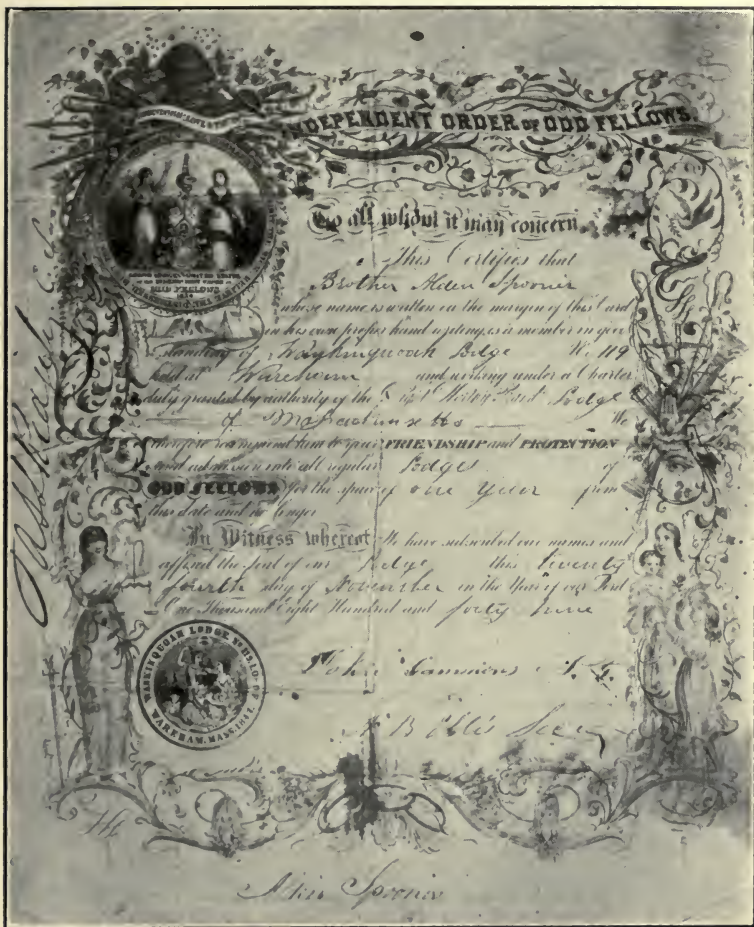 INDEPENDENT ORDER OF ODD FELLOWS.
To all whom it may concern
This Certifies that
Brother Alden Spooner
whose name is written on the margin of this Card
in his own proper hand writing, is a member in good
standing of Lodge No 119
held at Wareham and working under a Charter
duly granted by authority of the Lodge
of Massachusetts We
therefore recommend him to your FRIENDSHIP and PROTECTION
and admission into all regular Lodges of
ODD FELLOWS for the space of one year from
this date and no longer
In Witness whereof We have subscribed our names and
affixed the seal of our Lodge this twenty
fourth day of November in the Year of our Lord
One Thousand Eight Hundred and forty nine
WANKINQUOAH LODGE No 119, I.O. OF
WAREHAM, MASS. 1847.
John N.G.
B Ellis Secy
Alden Spooner